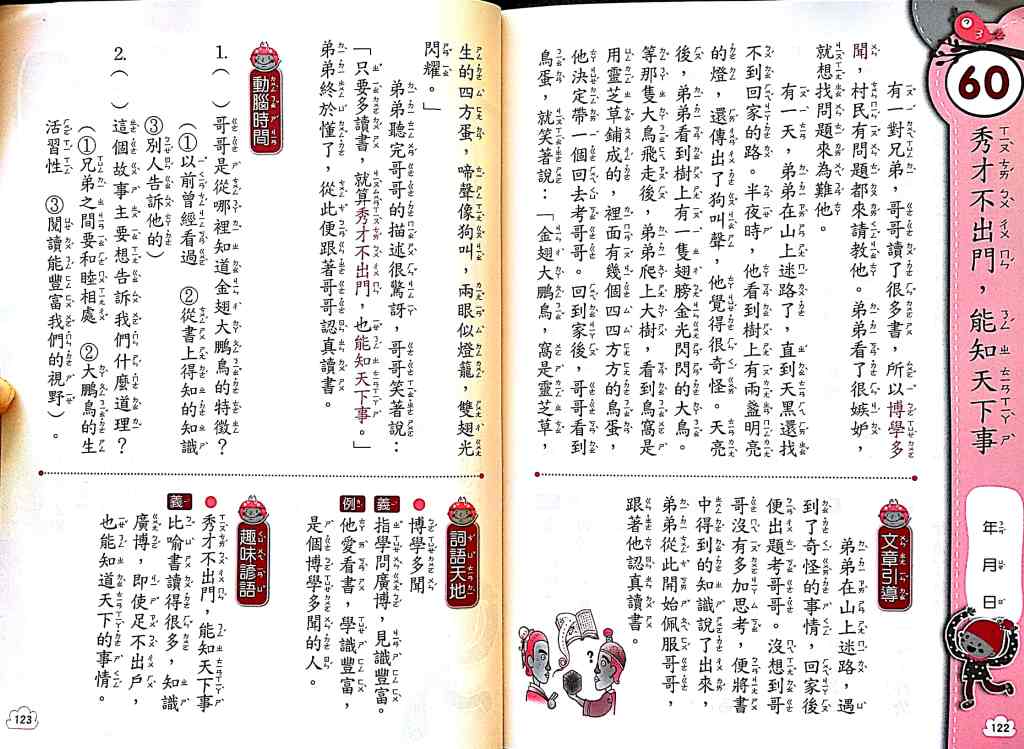 60
秀才不出門，能知天下事
年 月 日
有一對兄弟，哥哥讀了很多書，所以博學多
聞，村民有問題都來請教他。弟弟看了很嫉妒，
就想找問題來為難他。
有一天，弟弟在山上迷路了，直到天黑還找
不到回家的路。半夜時，他看到樹上有兩盞明亮
的燈，還傳出了狗叫聲，他覺得很奇怪。天亮
後，弟弟看到樹上有一隻翅膀金光閃閃的大鳥。
等那隻大鳥飛走後，弟弟爬上大樹，看到鳥窩是
用靈芝草鋪成的，裡面有幾個四四方方的鳥蛋，
他決定帶一個回去考哥哥。回到家後，哥哥看到
鳥蛋，就笑著說：「金翅大鵬鳥，窩是靈芝草，
文章引導
弟弟在山上迷路，遇
到了奇怪的事情，回家後
便出題考哥哥。沒想到哥
哥沒有多加思考，便將書
中得到的知識說了出來，
弟弟從此開始佩服哥哥，
跟著他認真讀書。
?
122
生的四方蛋，啼聲像狗叫，兩眼似燈籠，雙翅光
閃耀。」
弟弟聽完哥哥的描述很驚訝，哥哥笑著說：
「只要多讀書，就算秀才不出門，也能知天下事。」
弟弟終於懂了，從此便跟著哥哥認真讀書。
動腦時間
1.（ ）哥哥是從哪裡知道金翅大鵬鳥的特徵？
（①以前曾經看過 ②從書上得知的知識
③別人告訴他的）
2.（ ）這個故事主要想告訴我們什麼道理？
（①兄弟之間要和睦相處 ②大鵬鳥的生
活習性 ③閱讀能豐富我們的視野）。
詞語天地
●博學多聞
義 指學問廣博，見識豐富。
例 他愛看書，學識豐富，
是個博學多聞的人。
趣味諺語
●秀才不出門，能知天下事
義 比喻書讀得很多，知識
廣博，即使足不出戶，
也能知道天下的事情。
123